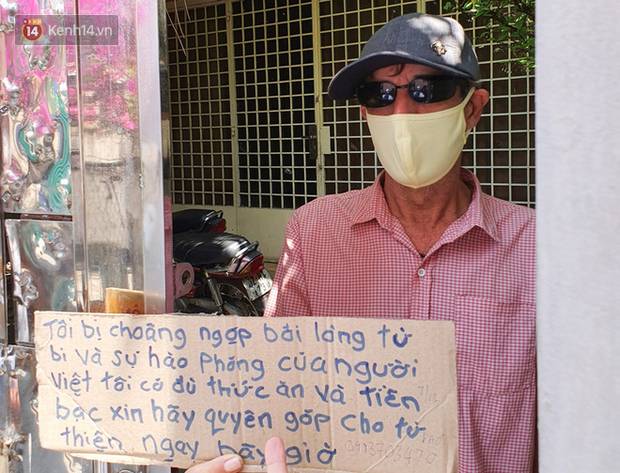 14
Kenh14.vn
Tôi bị choãng ngợp bởi lòng từ
bi và sự hào phóng của người
Việt tôi có đủ thức ăn và tiền
bạc xin hãy quyên góp cho từ
thiện ngay bây giờ